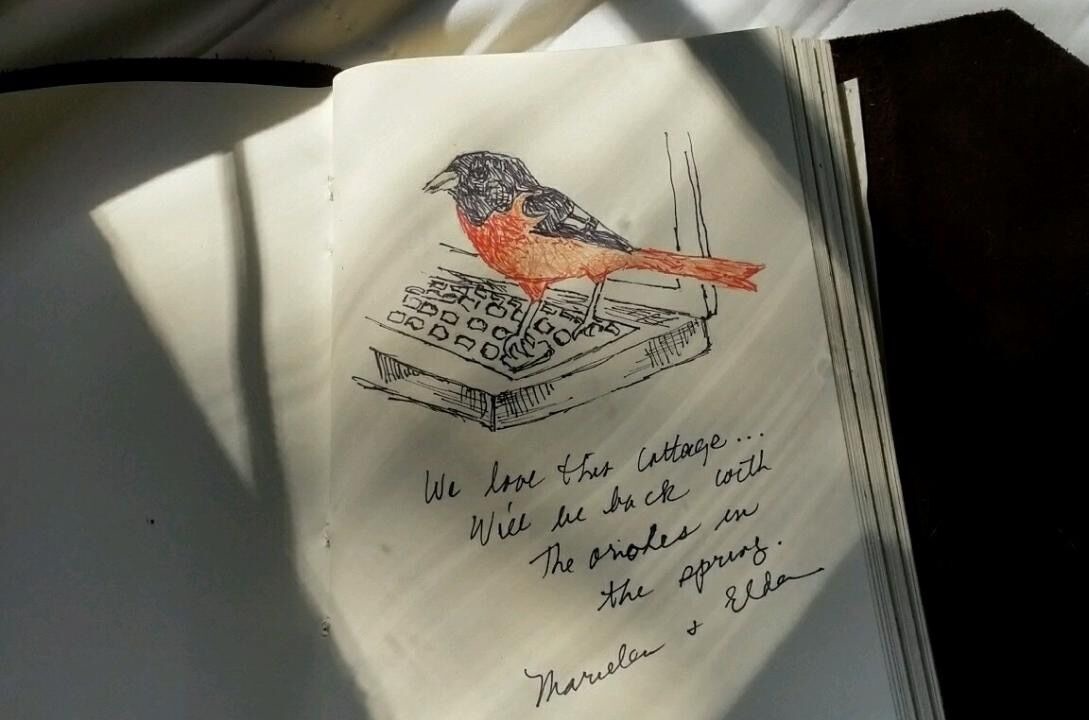 We love this cottage...
Will be back with
The orioles in
the spring.
& Elda